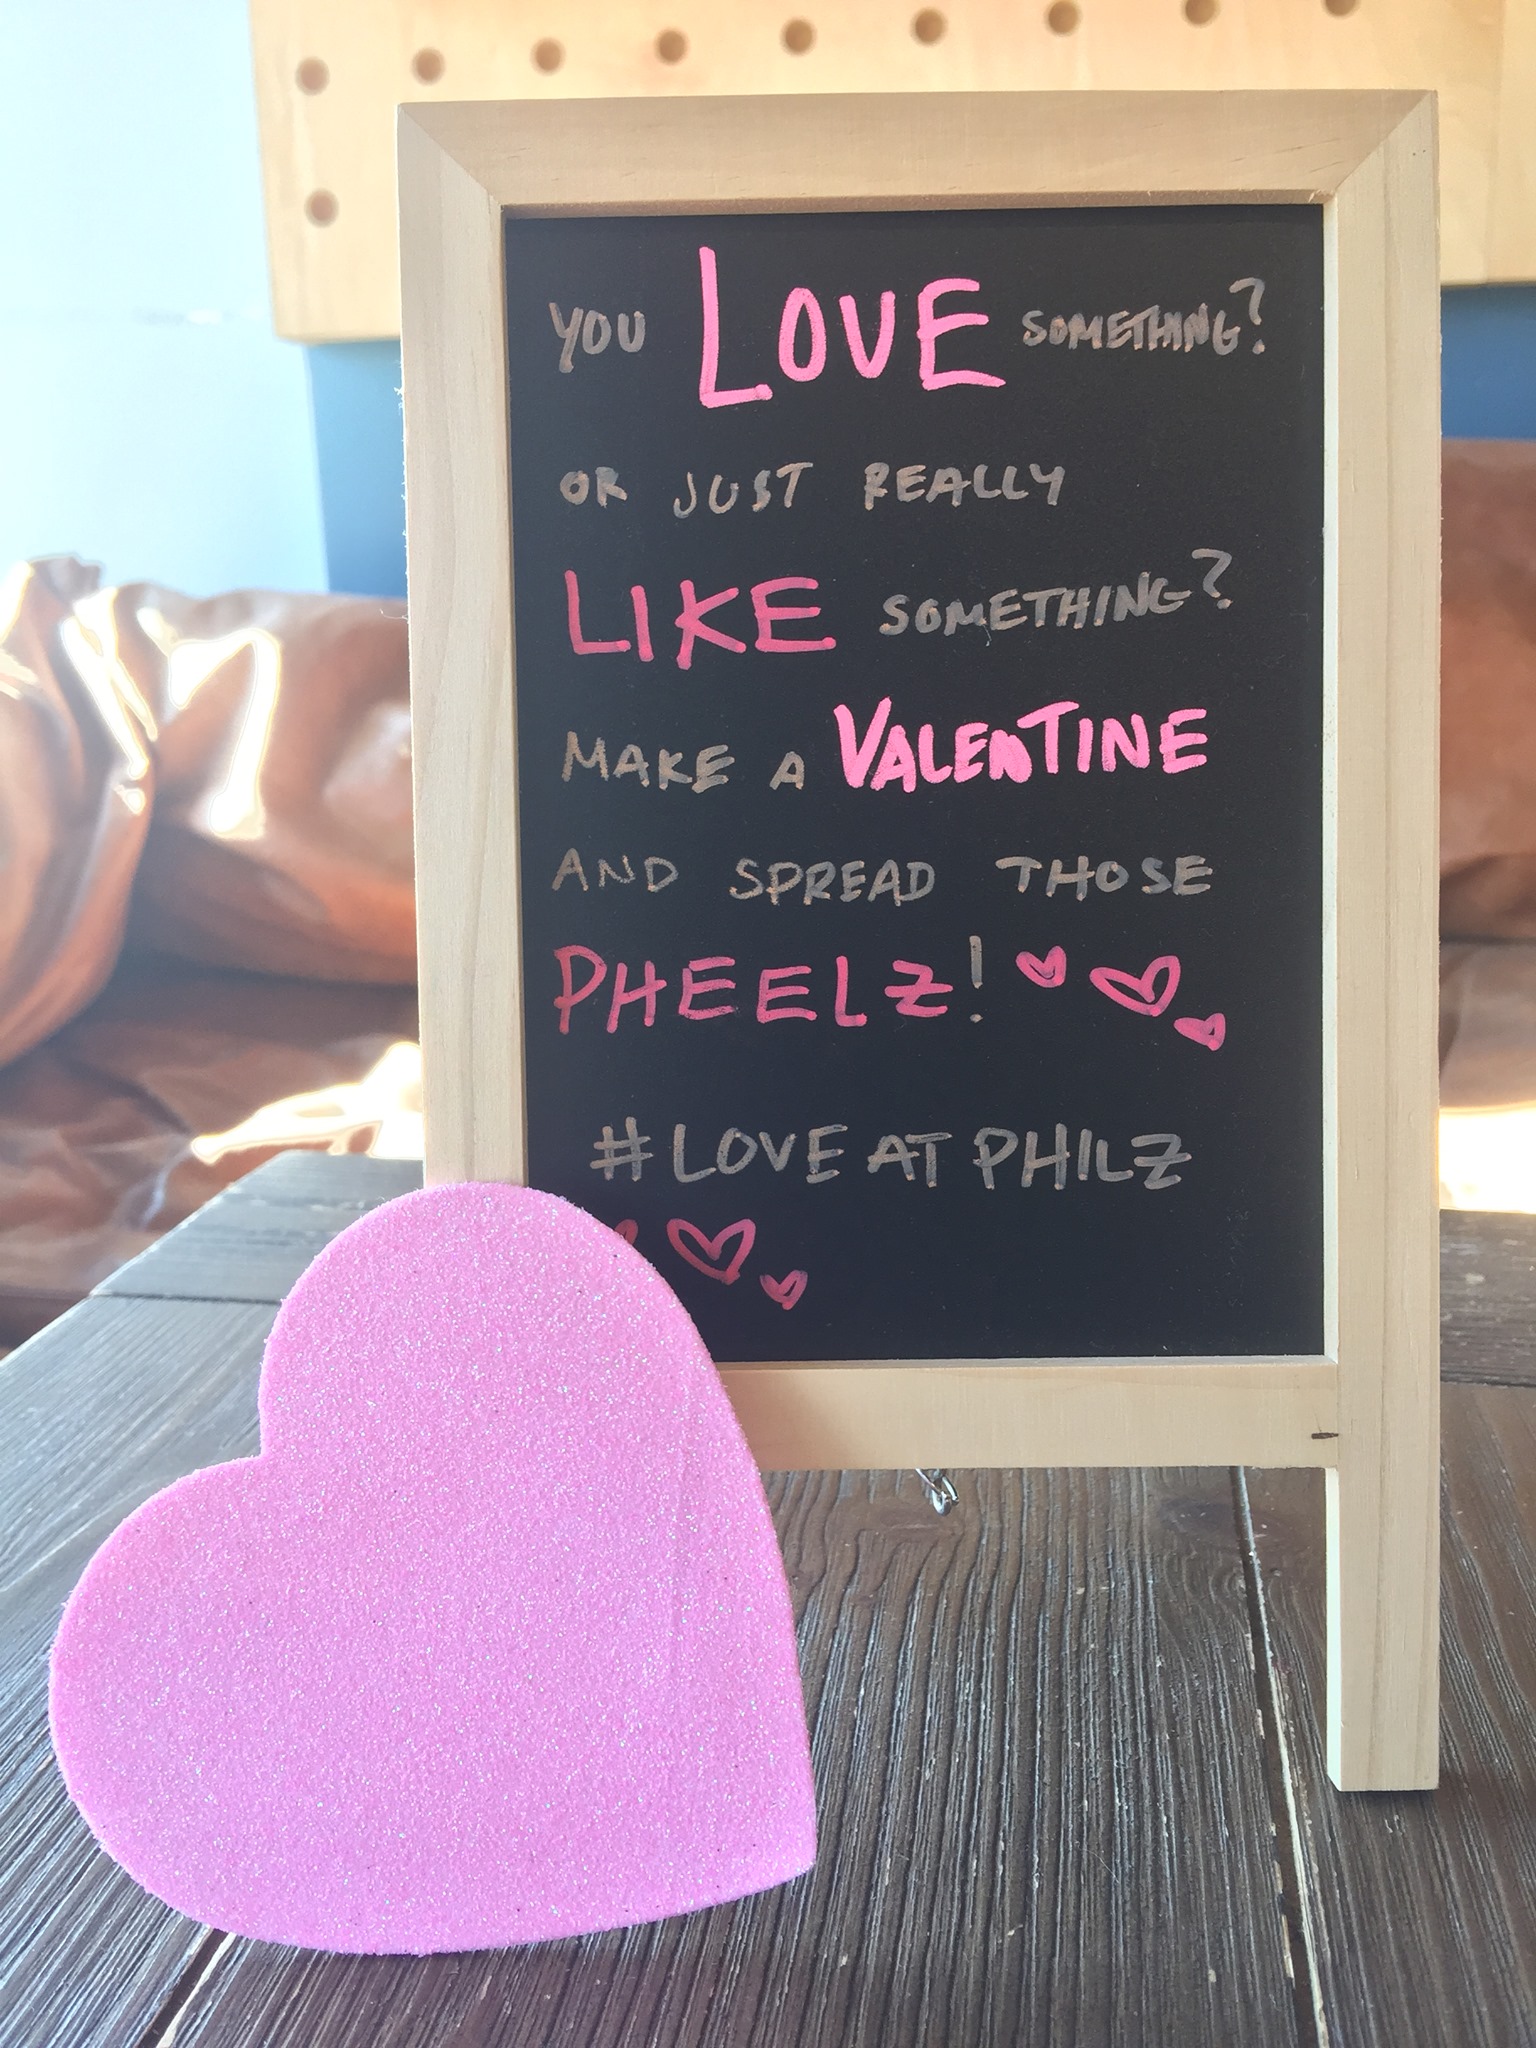 YOU LOVE SOMETHING?
OR JUST REALLY
LIKE SOMETHING?
MAKE A VALENTINE
AND SPREAD THOSE
PHEELZ!
#LOVEATPHILZ